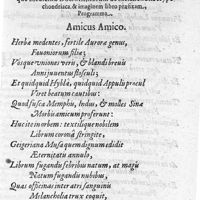 chondriaca & imaginem libro præfixam,
Programma.
Amicus Amico.
Herbæ medentes, fertile Auroræ genus,
Favoniorum filiæ;
Visque vniones veris, & blandi breuis
Anni juuentus flosculi;
Et quidquid Hyblæ, quidquid Appuli procul
Viret beatum cautibus:
Quod fusca Memphis, Indus, & molles Sinæ
Morbis amicum proferunt:
Huc ite in orbem: textilique nobilem
Librum coronâ stringite,
Geigeriana Musa quem dignum edidit
Æternitatis annulo,
Librum fugandis febribus natum, at magis
Natum fugandis nubibus,
Quas officinas inter atri sanguinis
Melancholia trux coquit,